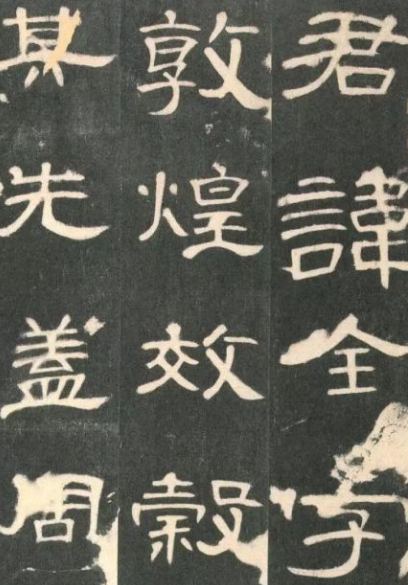 君諱全字
敦煌效穀
其先盖周